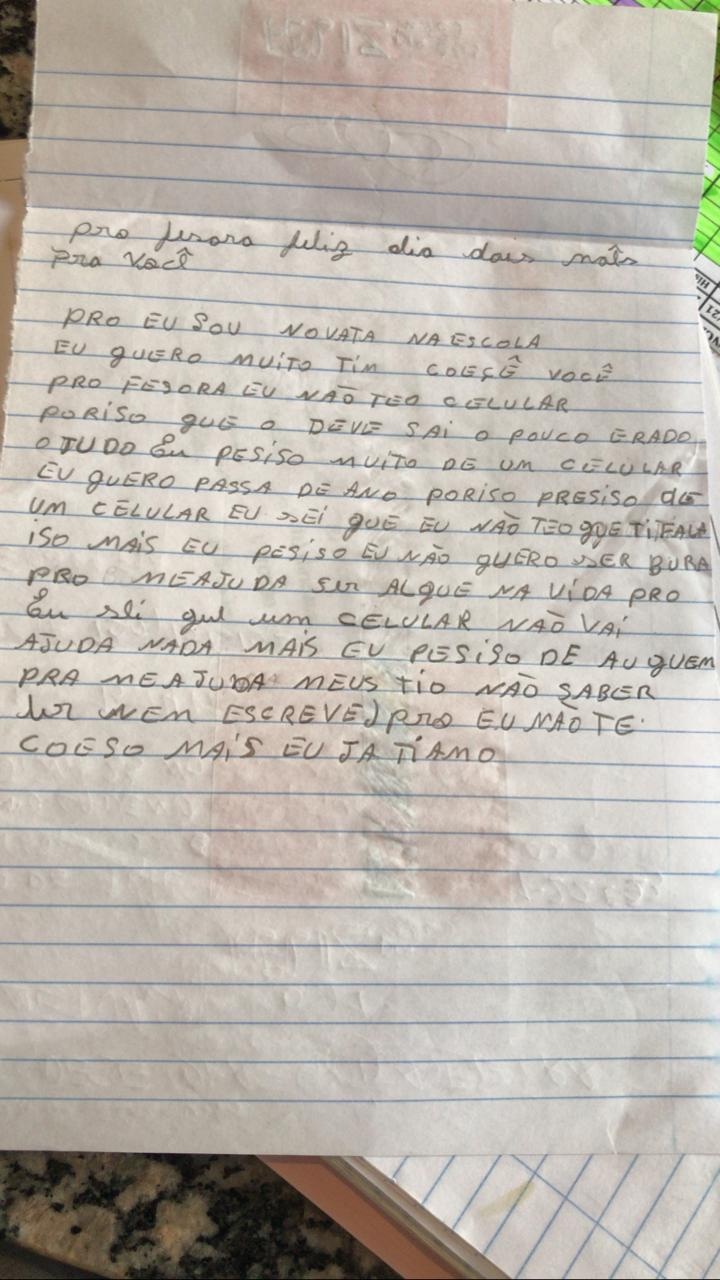 pro fesora feliz dia dais mats
Pra você
PRO EU SOU NOVATA NA ESCOLA
EU QUERO MUITO TIM COESÊ VOCÊ
PRO FESORA EU NÃO TEO CELULAR
PORISO QUE O DEVE SAI O POUCO ERADO
O TUDO Eu PESISO MUITO DE UM CELULAR
EU QUERO PASSA DE ANO PORISO PRESISO DE
UM CELULAR EU SEi QUE EU NÃO TEO QUE TI FALA
ISO MAIS EU PESISO EU NÃO QUERO SER BURA
PRO MEAJUDA Ser ALQUE NA VIDA PRO
Eu sei que um CELULAR NÃO VAi
AJUDA NADA MAIS EU PESISO DE AUGUEM
PRA MEAJUDA MEUS TIO NÃO SABER
ler NEM ESCREVE) pro EU NÃO TE
COESO MAIS EU JA TIAMO